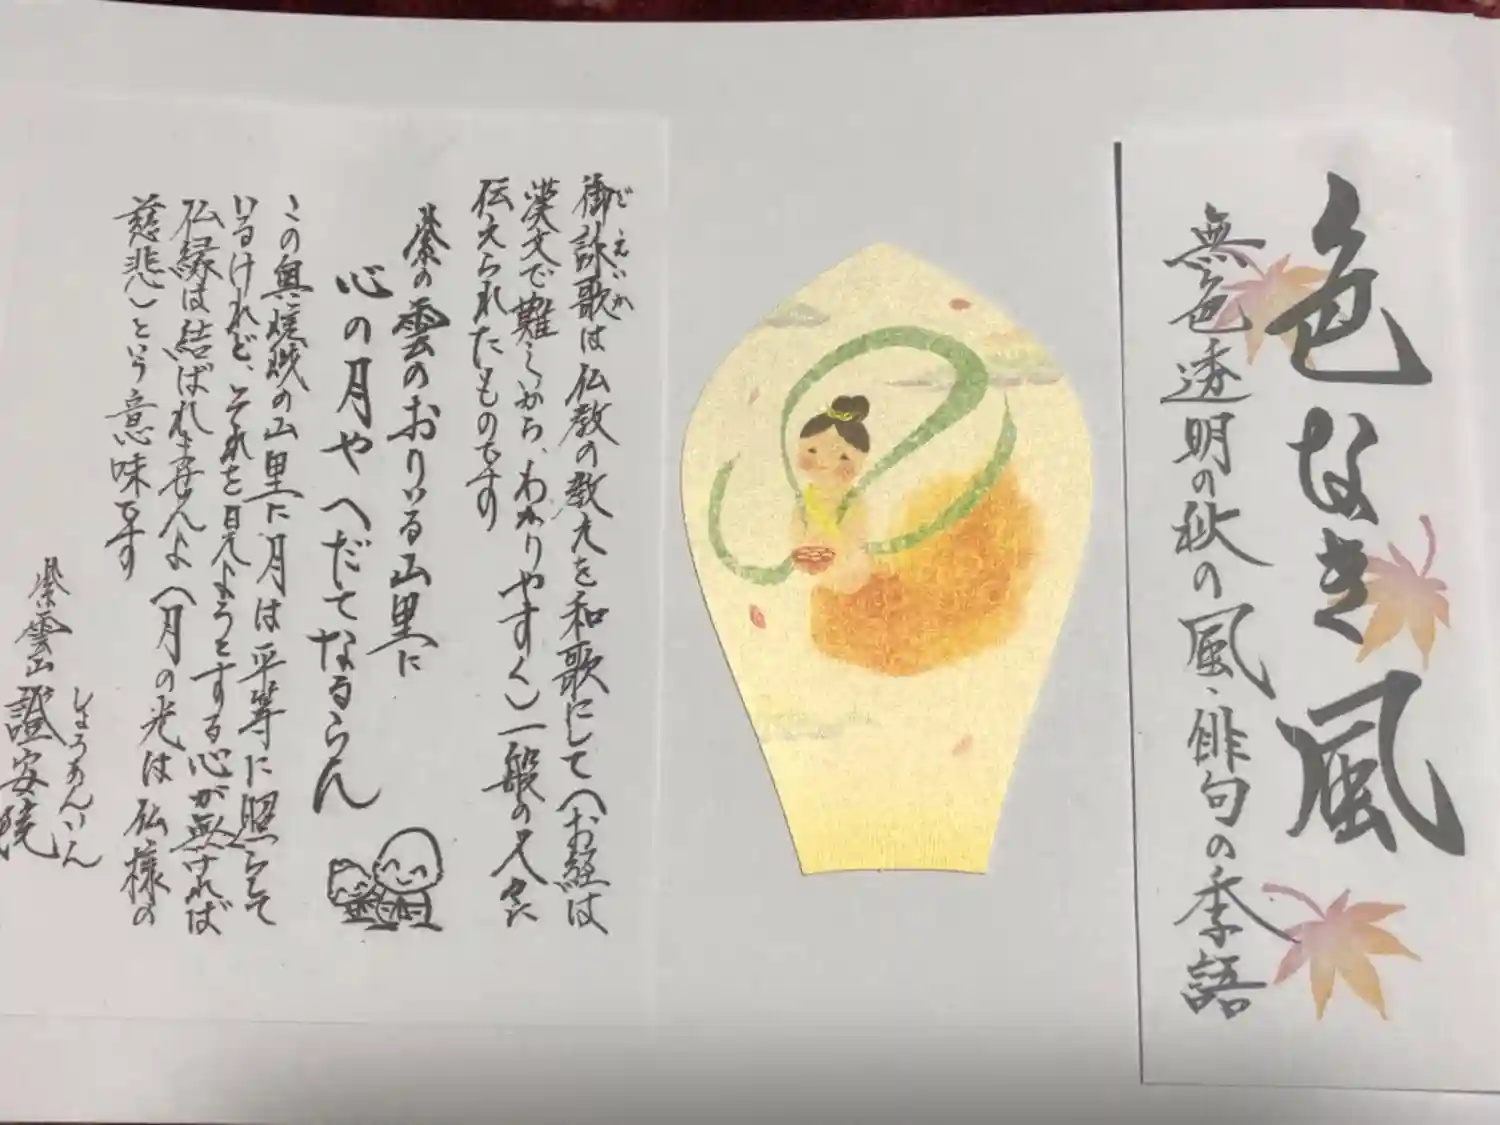 色なき風
無色透明の秋の風、俳句の季語
御詠歌は仏教の教えを和歌にして(お経は
ごえいか
漢文で難しいから、わかりやすく)一般の人々に
伝えられたものです
紫の雲のおりいる山里に
心の月や へだてなるらん
この奥境域の山里に月は平等に照らして
いるけれど、それを見ようとする心が無ければ
仏縁は結ばれませんよ(月の光は仏様の
慈悲)という意味です
紫雲山 證安院
しょうあんいん